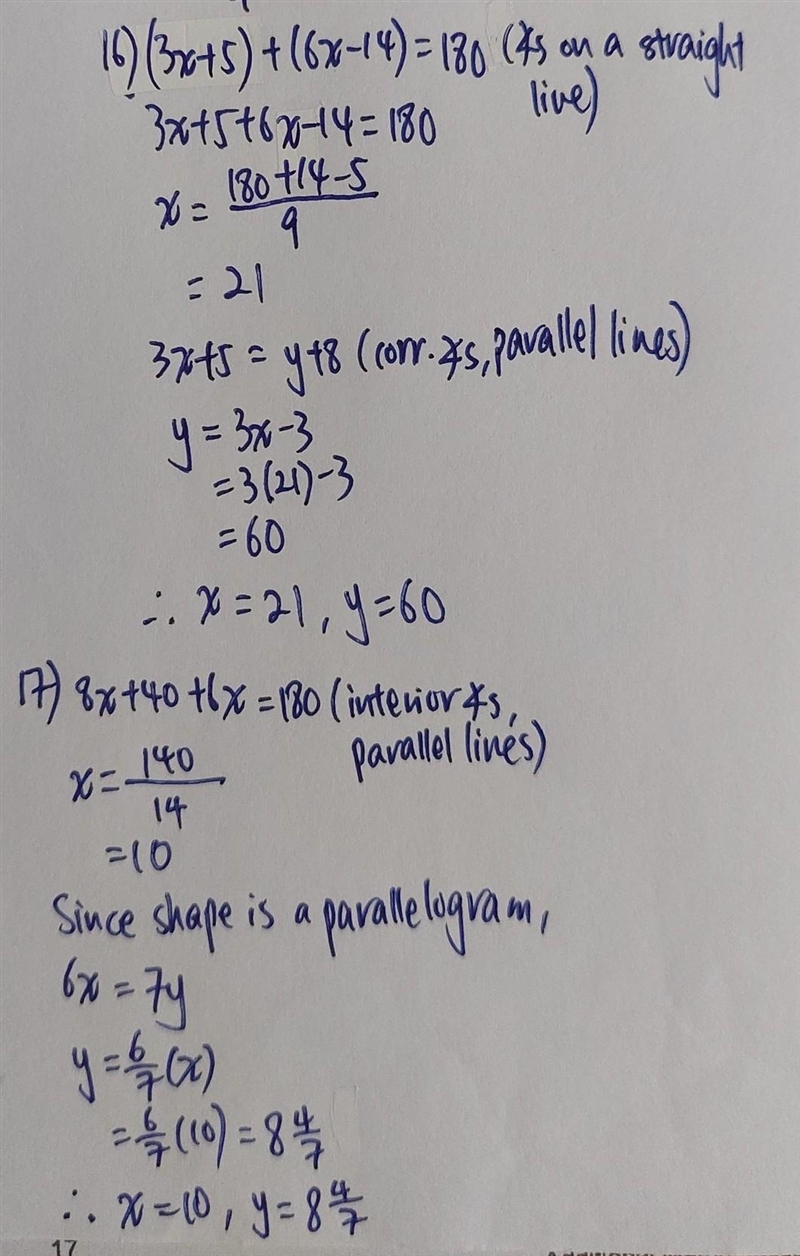 16) (3x+5) + (6x-14) = 180 (∡s on a straight
line)
3x+5+6x-14 = 180
x = \frac{180+14-5}{9}
= 21
3x+5 = y+8 (corr. ∡s, parallel lines)
y = 3x-3
= 3(21)-3
= 60
∴ x = 21, y = 60
17) 8x+40+6x = 180 (interior ∡s,
parallel lines)
x = \frac{140}{14}
= 10
Since shape is a parallelogram,
6x = 7y
y = \frac{6}{7}(x)
= \frac{6}{7}(10) = 8\frac{4}{7}
∴ x = 10, y = 8\frac{4}{7}
17